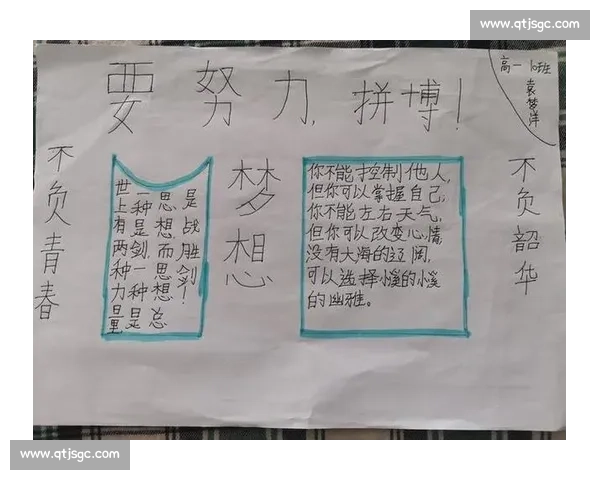 www.qtjsgc.com
高一10班
袁梦洋
要努力,拼博!
不负青春
世上有两种力量
一种是剑,一种是
思想,而思想总
是战胜剑!
梦想
你不能控制他人,
但你可以掌握自己;
你不能左右天气,
但你可以改变心情,
没有大海的辽阔,
可以选择小溪的小溪
的幽雅。
不负韶华
www.qtjsgc.com